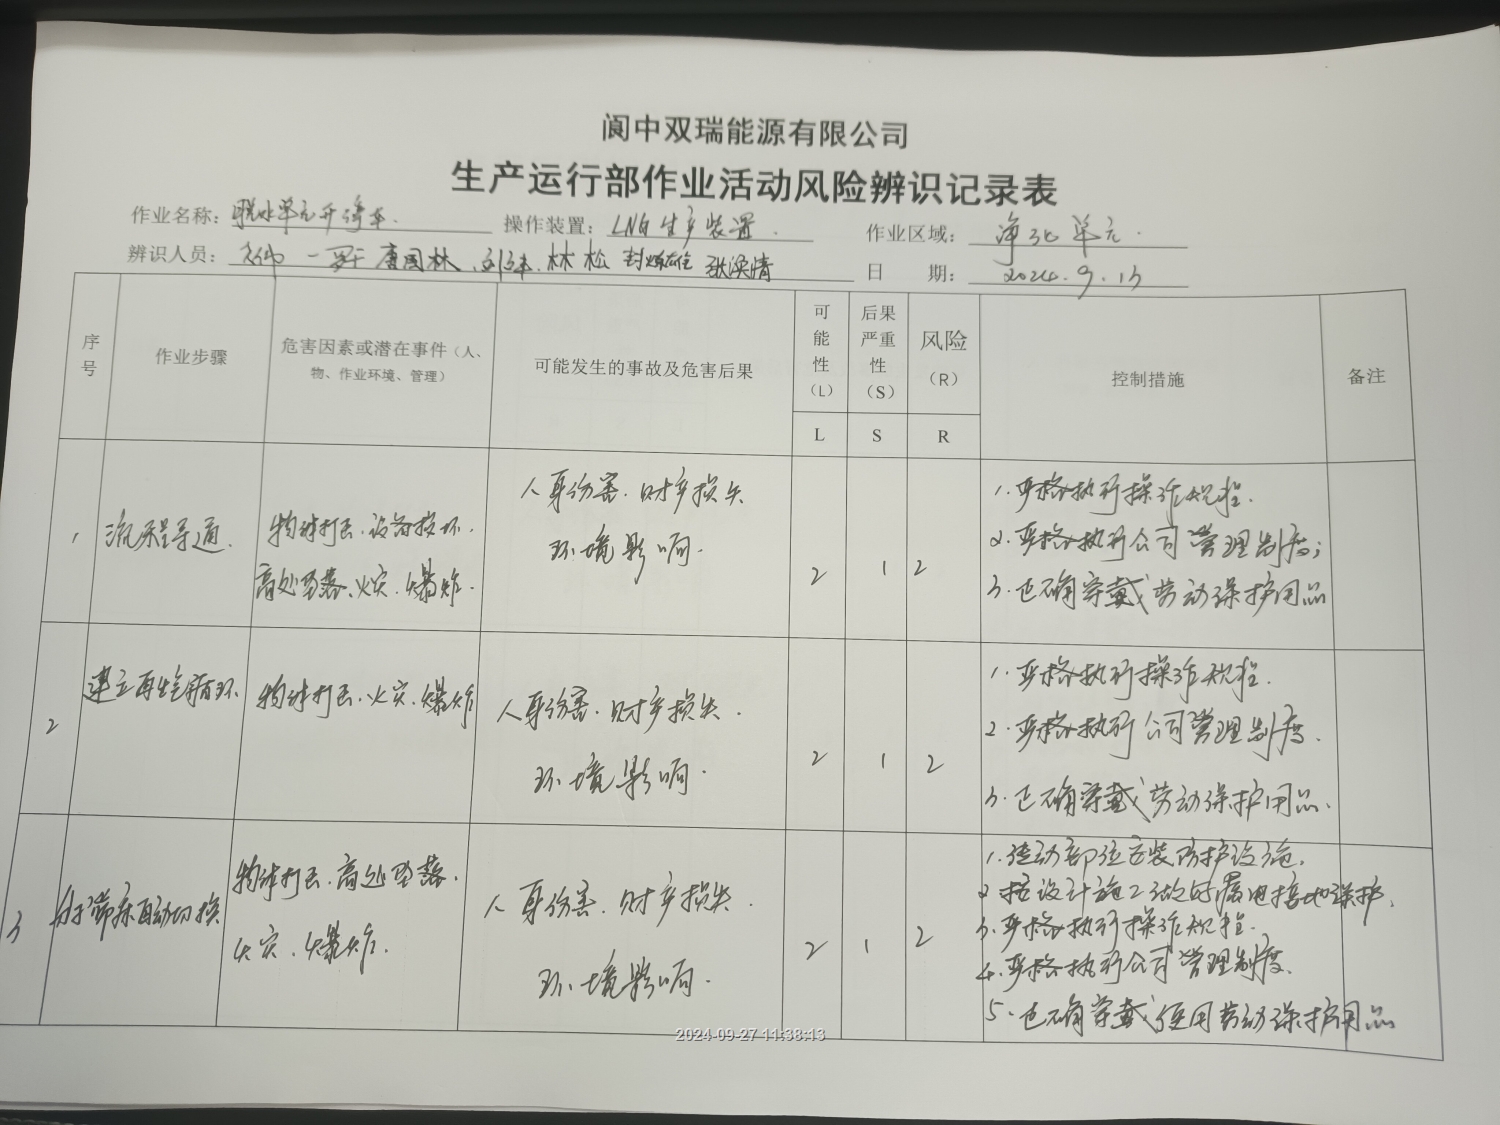 阆中双瑞能源有限公司
生产运行部作业活动风险辨识记录表
作业名称: 脱水单元开停车. 操作装置: LNG生产装置. 作业区域: 净化单元.
辨识人员: 唐国林、 林松 日 期: 2024.9.13
序号 作业步骤 危害因素或潜在事件(人、物、作业环境、管理) 可能发生的事故及危害后果 可能性(L) 后果严重性(S) 风险(R) 控制措施 备注
L S R
1 流程导通. 物体打击.设备损坏.高处坠落、火灾.爆炸. 人身伤害.财产损失 环境影响. 2 1 2
1.严格执行操作规程.
2.严格执行公司管理制度;
3.正确穿戴劳动保护用品
2 建立再生气循环 物体打击.火灾.爆炸 人身伤害.财产损失. 环境影响. 2 1 2
1.严格执行操作规程.
2.严格执行公司管理制度.
3.正确穿戴劳动保护用品.
3 分子筛床自动切换 物体打击.高处坠落.火灾.爆炸. 人身伤害.财产损失. 环境影响. 2 1 2
1.转动部位安装防护设施.
2.按设计施工做好漏电接地保护.
3.严格执行操作规程.
4.严格执行公司管理制度.
5.正确穿戴使用劳动保护用品
2024-09-27 11:38:13